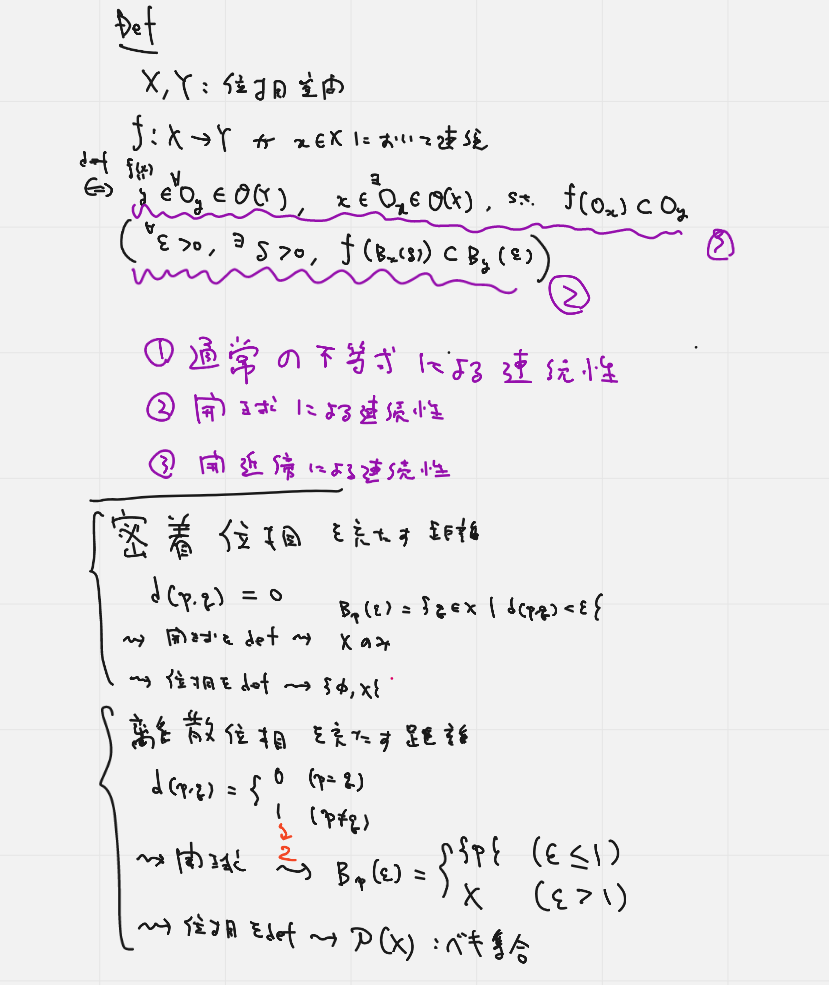 Def
X, Y : 位相空間
f : X → Y が x ∈ X において連続
def ⇔ f(x) y ∈ ∀O_y ∈ O(Y), x ∈ ∃O_x ∈ O(X), s.t. f(O_x) ⊂ O_y
③
(∀ε > 0, ∃δ > 0, f(B_x(δ)) ⊂ B_y(ε))
②
① 通常の不等式による連続性
② 開球による連続性
③ 開近傍による連続性
密着位相を充たす距離
d(p,q) = 0
B_p(ε) = {q ∈ X | d(p,q) < ε}
⇝ 開球を def ⇝ X のみ
⇝ 位相を def ⇝ {φ, X}
離散位相を充たす距離
d(p,q) = { 0 (p=q)
1 (p≠q)
2
⇝ 開球 ⇝ B_p(ε) = { {p} (ε ≤ 1)
X (ε > 1)
⇝ 位相を def ⇝ P(X) : ベキ集合